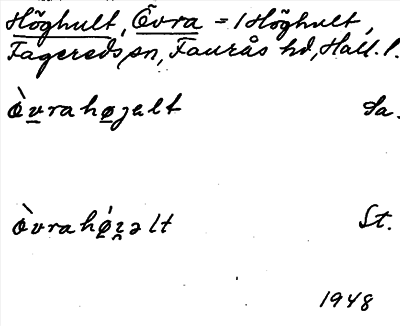 Höghult, Övra = 1 Höghult,
Fagereds sn, Faurås hd, Hall. l.
Òvrahøʒəlt Sa.
Òvrahǿʒ̯əlt St.
1948